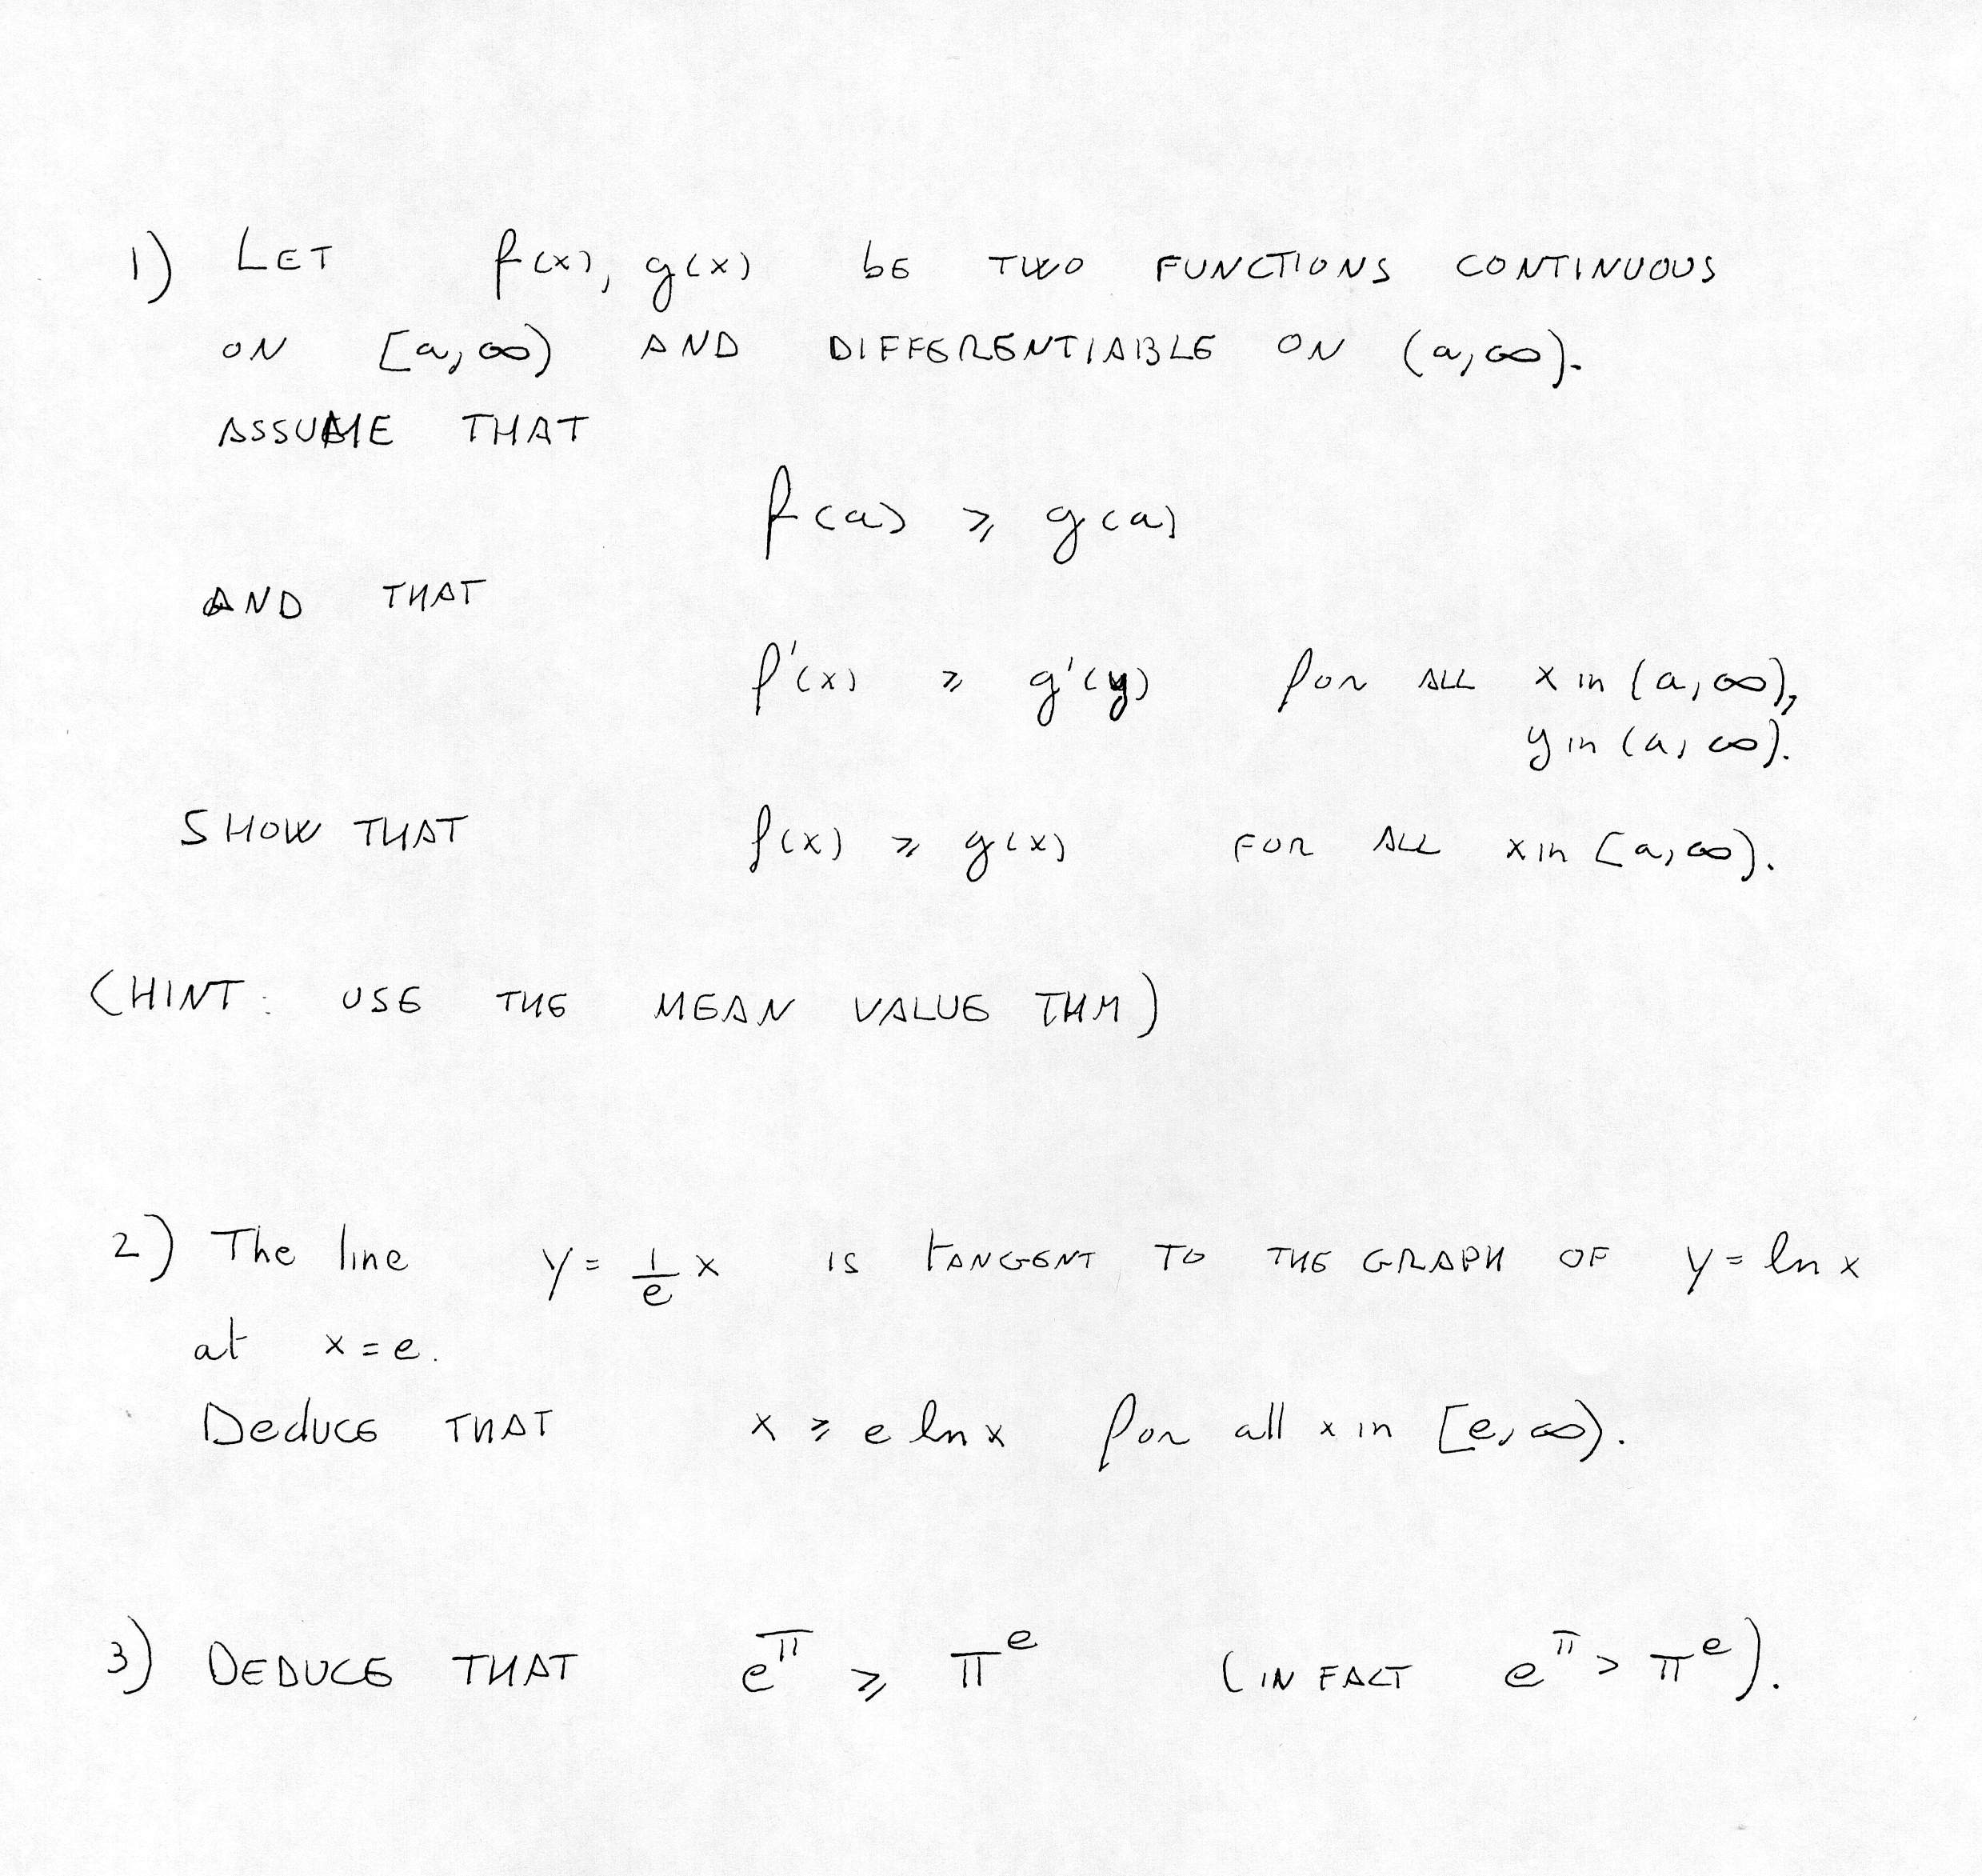 1) LET f(x), g(x) bE TWO FUNCTIONS CONTINUOUS
ON [a, ∞) AND DIFFERENTIABLE ON (a, ∞).
ASSUME THAT
f(a) ⩾ g(a)
AND THAT
f'(x) ⩾ g'(y) for ALL x in (a, ∞),
y in (a, ∞).
SHOW THAT f(x) ⩾ g(x) FOR ALL x in [a, ∞).
(HINT: USE THE MEAN VALUE THM)
2) The line y = 1/e x IS TANGENT TO THE GRAPH OF y = ln x
at x = e.
Deduce THAT x ⩾ e ln x for all x in [e, ∞).
3) DEDUCE THAT e^π ⩾ π^e (IN FACT e^π > π^e).